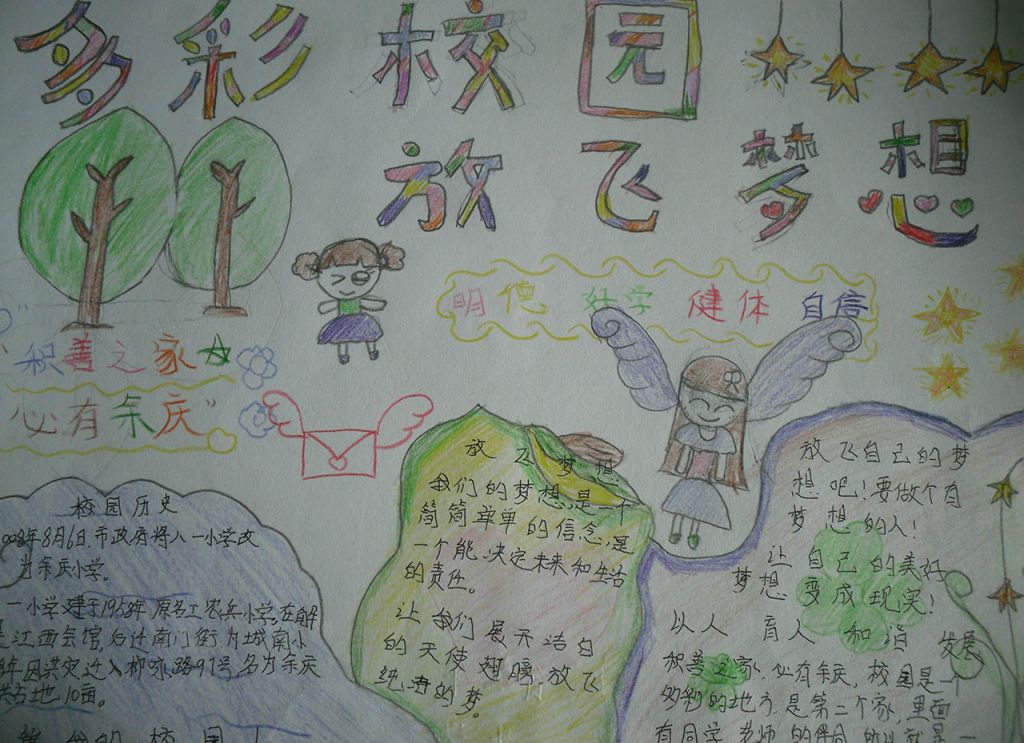 多彩校园
放飞梦想
明德 好学 健体 自信
"积善之家
必有余庆"
校园历史
008年8月6日.市政府将八一小学改
为余庆小学。
一小学建于1958年.原名工农兵小学.在解
江西会馆,后迁南门街为城南小
年因洪灾迁入柳咏路97号,名为余庆
共占地10亩。
校园
放飞梦想
我们的梦想,是一个
简简单单的信念,是
一个能决定未来和生活
的责任。
让我们展开洁白
的天使翅膀,放飞
纯洁的梦。
放飞自己的梦
想吧!要做个有
梦想的人!
让自己的美好
梦想变成现实!
以人 育人 和谐 发展
积善之家.必有余庆,校园是一个
多彩的地方.是第二个家,里面
有同学 老师 的伴同 所以就是一